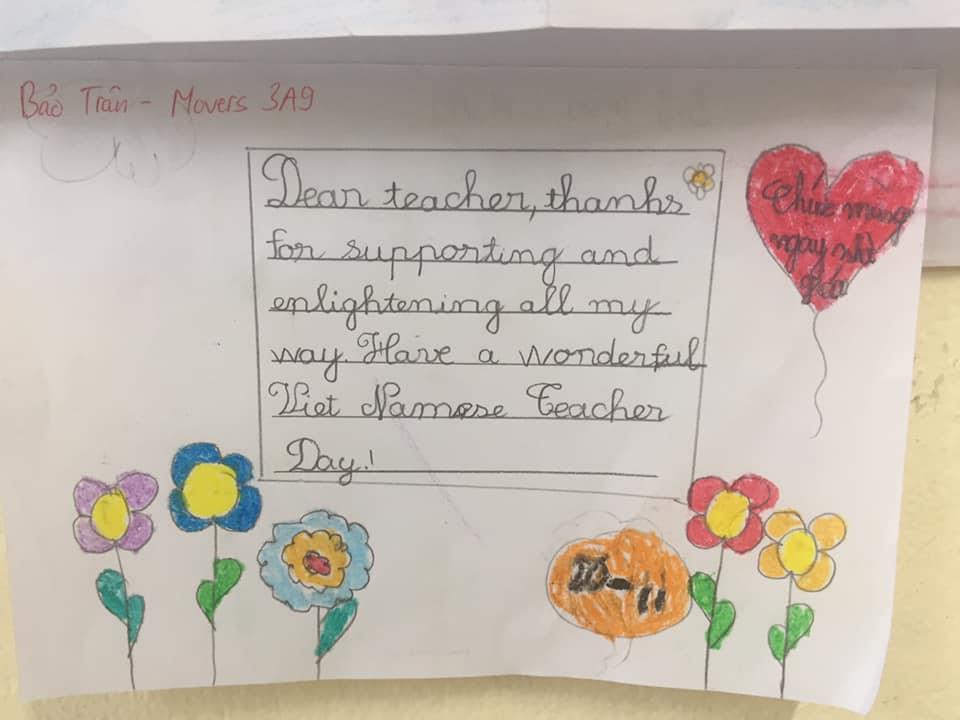 Bảo Trân - Movers 3A9
Dear teacher, thanks
for supporting and
enlightening all my
way. Have a wonderful
Viet Namese Teacher
Day!
Chúc mừng
ngay nhà
giáo
20-11